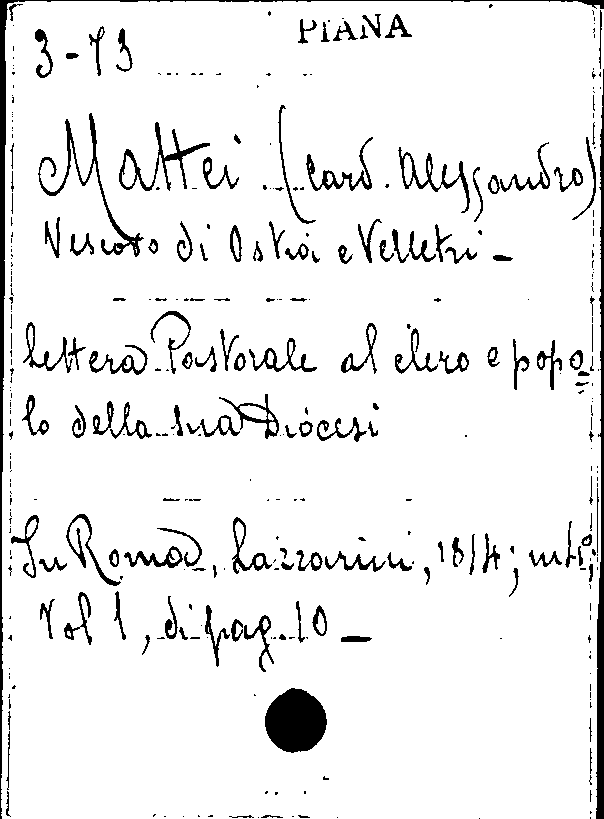 PIANA
3-73
Mattei (Card. Alessandro)
Vescovo di Ostia e Velletri -
Lettera Pastorale al clero e popo=
lo della sua Diocesi
In Roma, Lazzarini, 1814; in 4°;
Vol 1, di pag. 10 -